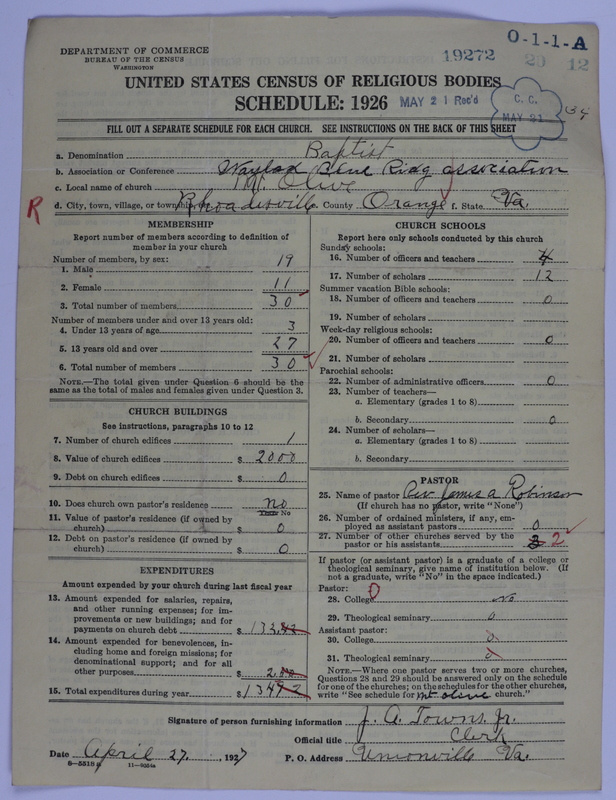 DEPARTMENT OF COMMERCE
BUREAU OF THE CENSUS
WASHINGTON
19272
0-1-1-A
20 12
UNITED STATES CENSUS OF RELIGIOUS BODIES
SCHEDULE: 1926
MAY 21 Rec'd
C. C.
MAY 31
FILL OUT A SEPARATE SCHEDULE FOR EACH CHURCH. SEE INSTRUCTIONS ON THE BACK OF THIS SHEET
a. Denomination Baptist
b. Association or Conference Wayland Blue Ridg association
c. Local name of church Mt. Olive
R
d. City, town, village, or township Rhoadesville e. County Orange f. State Va.
MEMBERSHIP
Report number of members according to definition of
member in your church
Number of members, by sex:
1. Male 19
2. Female 11
3. Total number of members 30
Number of members under and over 13 years old:
4. Under 13 years of age 3
5. 13 years old and over 27
6. Total number of members 30
NOTE.—The total given under Question 6 should be the
same as the total of males and females given under Question 3.
CHURCH BUILDINGS
See instructions, paragraphs 10 to 12
7. Number of church edifices 1
8. Value of church edifices $ 2000
9. Debt on church edifices $ 0
10. Does church own pastor's residence no
Yes or No
11. Value of pastor's residence (if owned by
church) $ 0
12. Debt on pastor's residence (if owned by
church) $ 0
EXPENDITURES
Amount expended by your church during last fiscal year
13. Amount expended for salaries, repairs,
and other running expenses; for im-
provements or new buildings; and for
payments on church debt $ 132.42
14. Amount expended for benevolences, in-
cluding home and foreign missions; for
denominational support; and for all
other purposes $ 2.00
15. Total expenditures during year $ 134.42
CHURCH SCHOOLS
Report here only schools conducted by this church
Sunday schools:
16. Number of officers and teachers 4
17. Number of scholars 12
Summer vacation Bible schools:
18. Number of officers and teachers 0
19. Number of scholars
Week-day religious schools:
20. Number of officers and teachers 0
21. Number of scholars
Parochial schools:
22. Number of administrative officers 0
23. Number of teachers—
a. Elementary (grades 1 to 8)
b. Secondary 0
24. Number of scholars—
a. Elementary (grades 1 to 8)
b. Secondary
PASTOR
25. Name of pastor Rev. James A Robinson
(If church has no pastor, write "None")
26. Number of ordained ministers, if any, em-
ployed as assistant pastors 0
27. Number of other churches served by the
pastor or his assistants 3 2
If pastor (or assistant pastor) is a graduate of a college or
theological seminary, give name of institution below. (If
not a graduate, write "No" in the space indicated.)
Pastor:
28. College No
29. Theological seminary 0
Assistant pastor:
30. College 0
31. Theological seminary 0
NOTE.—Where one pastor serves two or more churches,
Questions 28 and 29 should be answered only on the schedule
for one of the churches; on the schedules for the other churches,
write "See schedule for Mt olive church."
Signature of person furnishing information J. A. Towns Jr.
Official title Clerk
Date April 27, 1927 P. O. Address Unionville Va.
8-5518 a 11-9054a